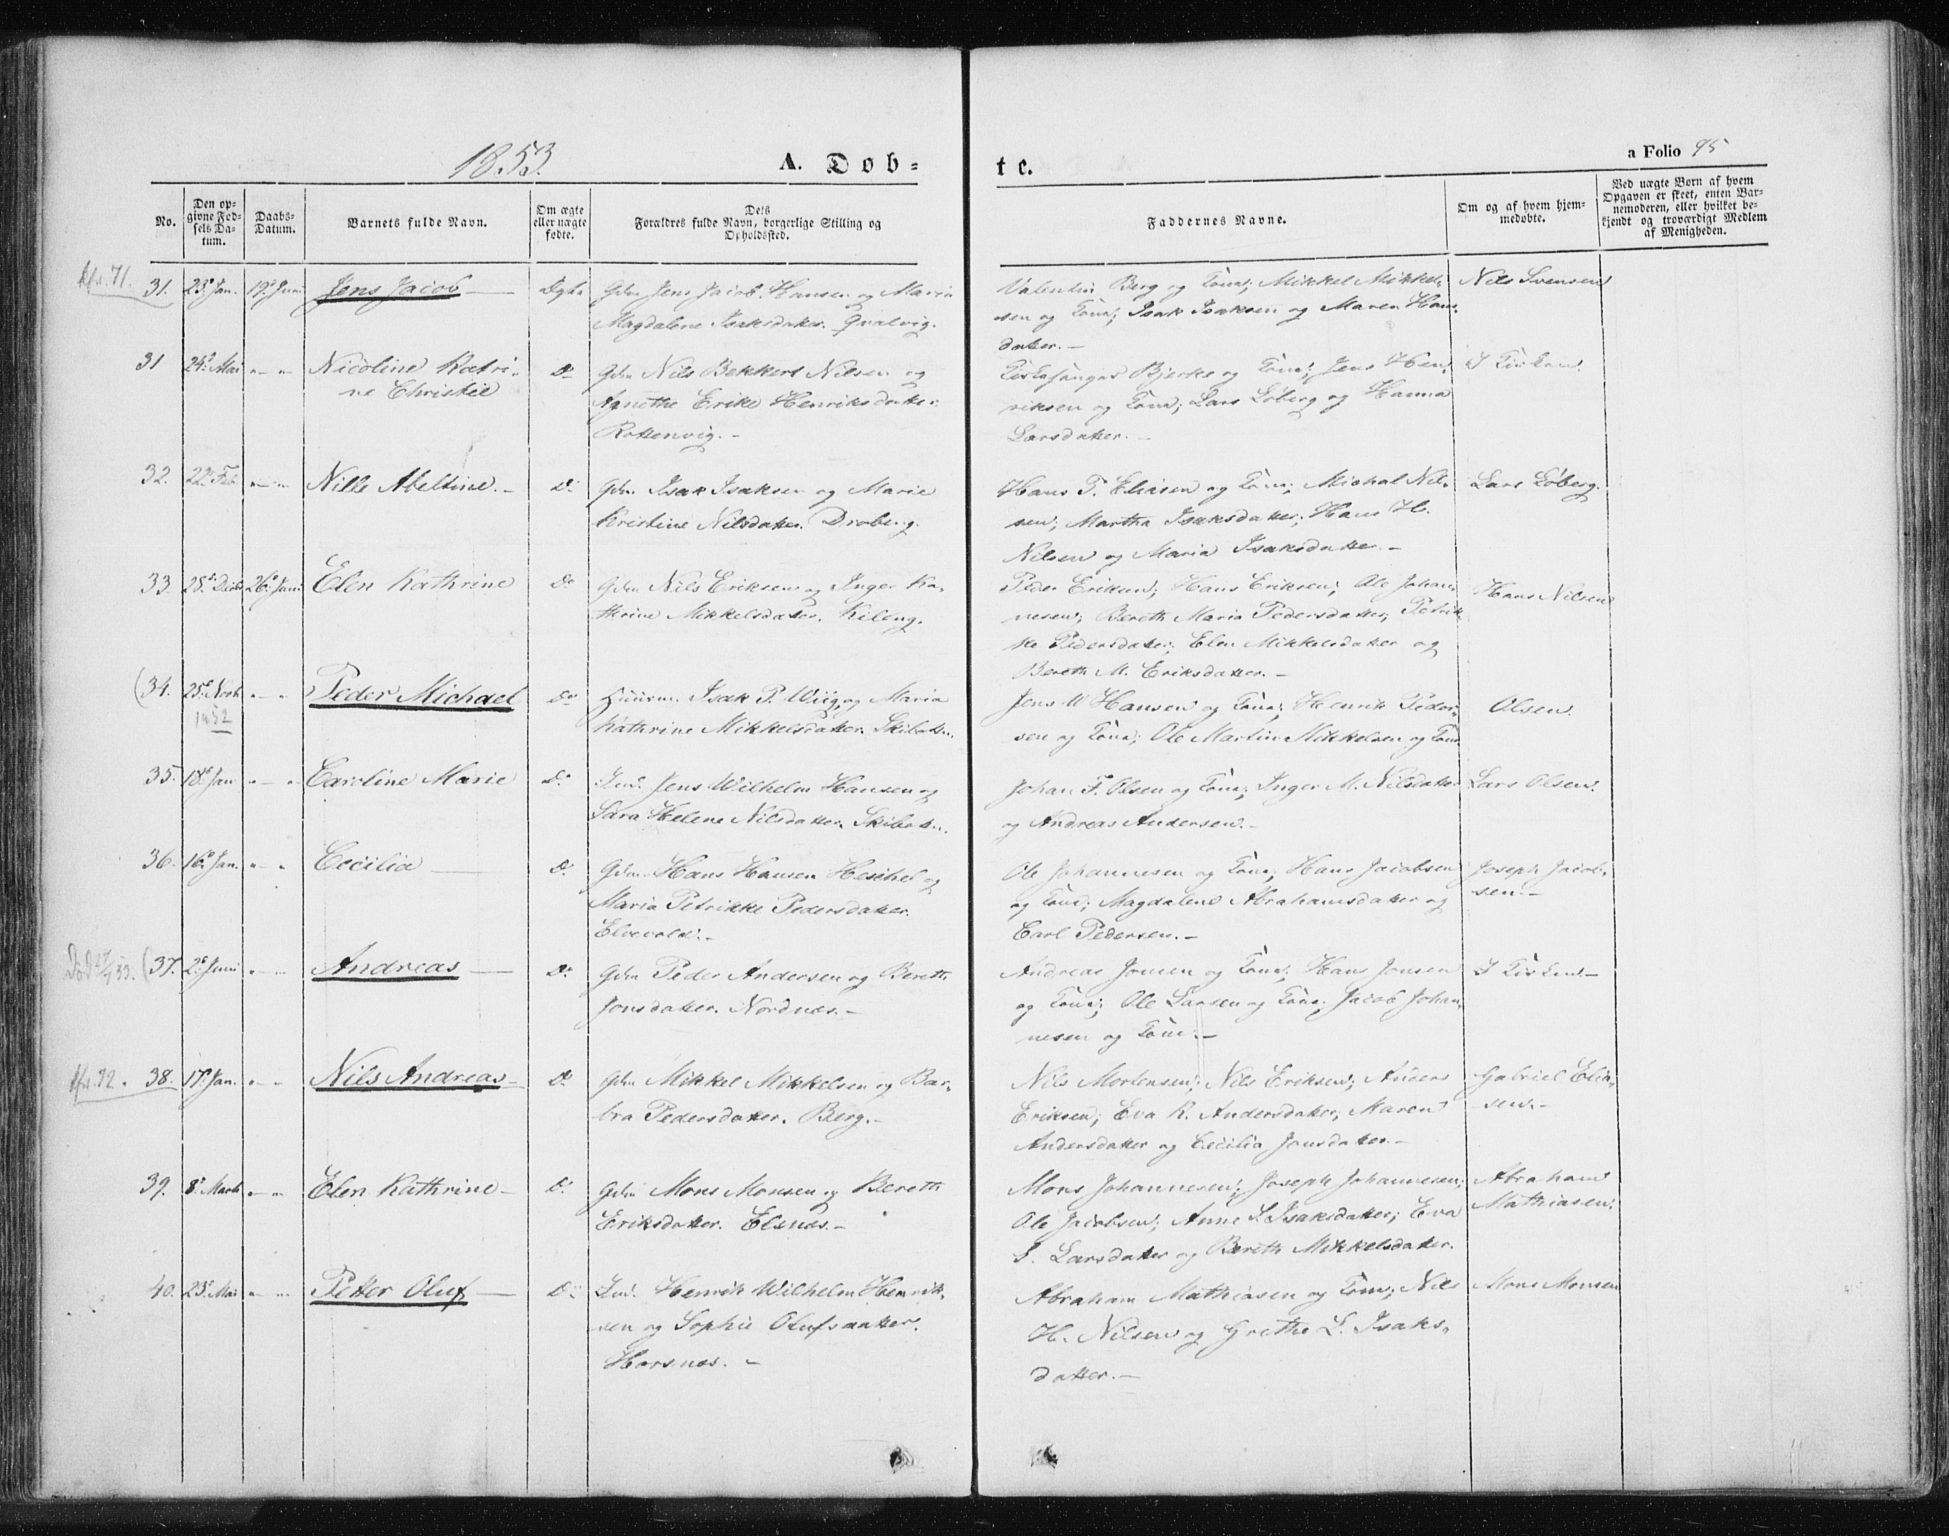 1853.
A. Døb-
te.
a Folio 95
No.
Den op-
givne Fød-
sels Da-
tum.
Daabs-
Datum.
Barnets fulde Navn.
Om ægte
eller uægte
fødte.
Dets
Forældres fulde Navn, borgerlige Stilling og
Opholdssted.
Faddernes Navne.
Om og af hvem hjem-
medøbte.
Ved uægte Børn af hvem
Opgaven er skeet, enten Bar-
nemoderen, eller hvilket be-
kjendt og troværdigt Medlem
af Menigheden.
31. 23de Jan. 19de Juni Jens Jacob Ægte Gdm Jens Jacob Hansen og Maria
Magdalene Isaksdatter. Qvalvig.
Valentin Berg og Kone; Mikkel Mikkel-
sen og Kone; Isak Isaksen og Maren Hans-
datter.
Nils Svensen
31 24de Mai Nicoline Katri-
ne Christie Do Gdm Nils Bekkert Nilsen og
Agnethe Erike Henriksdatter.
Rottenvig.
Kirkesanger Bjerke og Kone; Jens Hen-
riksen og Kone; Lars Løberg og Hanna
Larsdatter.
I Kirken
32. 22de Feb. Nille Abeltine. Do Gdm. Isak Isaksen og Marie
Kristine Nilsdatter. Droberg.
Hans P. Eliasen og Kone; Michal Nil-
sen; Martha Isaksdatter; Hans H.
Nilsen og Maria Isaksdatter.
Lars Løberg.
33. 28de Decb 26de Juni Elen Kathrine Do Gdm Nils Eriksen og Inger Ka-
thrine Mikkelsdatter. Kileng.
Peder Eriksen; Hans Eriksen; Ole Johan-
nesen; Bereth Maria Pedersdatter; Petrik-
ke Pedersdatter; Elen Mikkelsdatter og
Bereth M. Eriksdatter.
Hans Nilsen
(34. 25de Novb
1852
Peder Michael Do Huusm. Isak P. Wiig og Maria
Kathrine Mikkelsdatter. Skibotn.
Jens W Hansen og Kone; Henrik Peder-
sen og Kone; Ole Martin Mikkelsen og Kone
Olsen.
35. 18de Jan Caroline Marie Do Ind. Jens Wilhelm Hansen og
Sara Helene Nilsdatter. Skibotn.
Johan F. Olsen og Kone; Inger M. Nilsdatter
og Andreas Andersen.
Lars Olsen.
36. 16de Jan. Cecilia Do Gdm. Hans Hansen og
Maria Petrikke Pedersdatter.
Elvevold.
Ole Johannesen og Kone; Hans Jacobsen
og Kone; Magdalene Abrahamsdatter og
Carl Pedersen.
Joseph Jacob-
sen.
(37. 2de Juni Andreas Do Gdm Peder Andersen og Bereth
Jonsdatter. Nordnes.
Andreas Jonsen og Kone; Hans Jonsen
og Kone; Ole Larsen og Kone; Jacob Johan-
nesen og Kone.
I Kirken.
38. 17de Jan. Nils Andreas Do Gdm Mikkel Mikkelsen og Bar-
bra Pedersdatter. Berg.
Nils Mortensen; Nils Eriksen; Anders
Eriksen; Eva R. Andersdatter; Maren
Andersdatter og Cecilia Jonsdatter.
Gabriel Elia-
sen.
39. 8de Marts Elen Kathrine Do Gdm Mons Monsen og Bereth
Eriksdatter. Elsnes.
Mons Johannesen; Joseph Johannesen;
Ole Jacobsen; Anne S. Isaksdatter; Eva
S. Larsdatter og Bereth Mikkelsdatter.
Abraham
Mathiasen.
40. 23de Mai Petter Oluf Do Ind. Henrik Wilhelm Henrik-
sen og Sophie Olufsdatter.
Horsnes.
Abraham Mathiasen og Kone; Nils
H. Nilsen og Grethe L. Isaks-
datter.
Mons Monsen